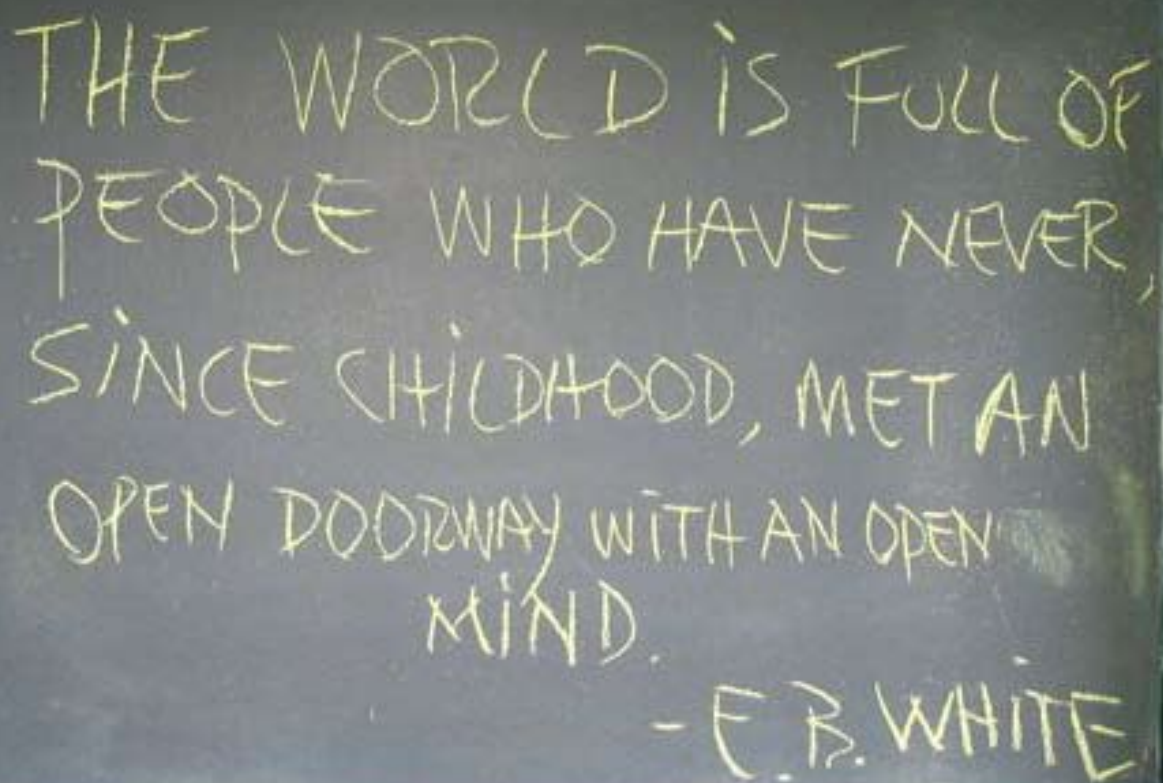 THE WORLD iS FULL OF
PEOPLE WHO HAVE NEVER,
SiNCE CHiLDHOOD, MET AN
OPEN DOORWAY WiTH AN OPEN
MiND.
- E.B. WHiTE